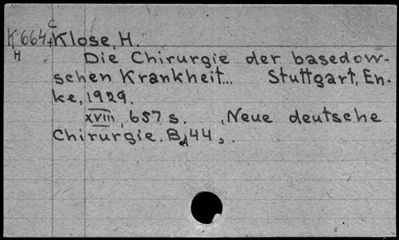 C
K664 Klose, H.
H
Die Chirurgie der basedow-
schen Krankheit... Stuttgart, En-
ke, 1929.
XVIII, 657 s. Neue deutsche
Chirurgie. Bd 44.